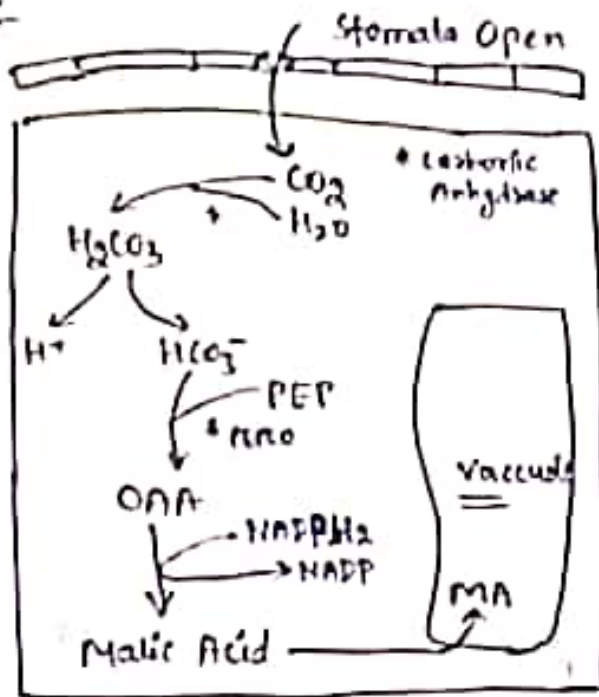 Stomata Open
CO₂
* Carbonic
Anhydrase
H₂O
*
H₂CO₃
H⁺
HCO₃⁻
PEP
*
OAA
NADPH₂
NADP
Malic Acid
Vaccuole
MA